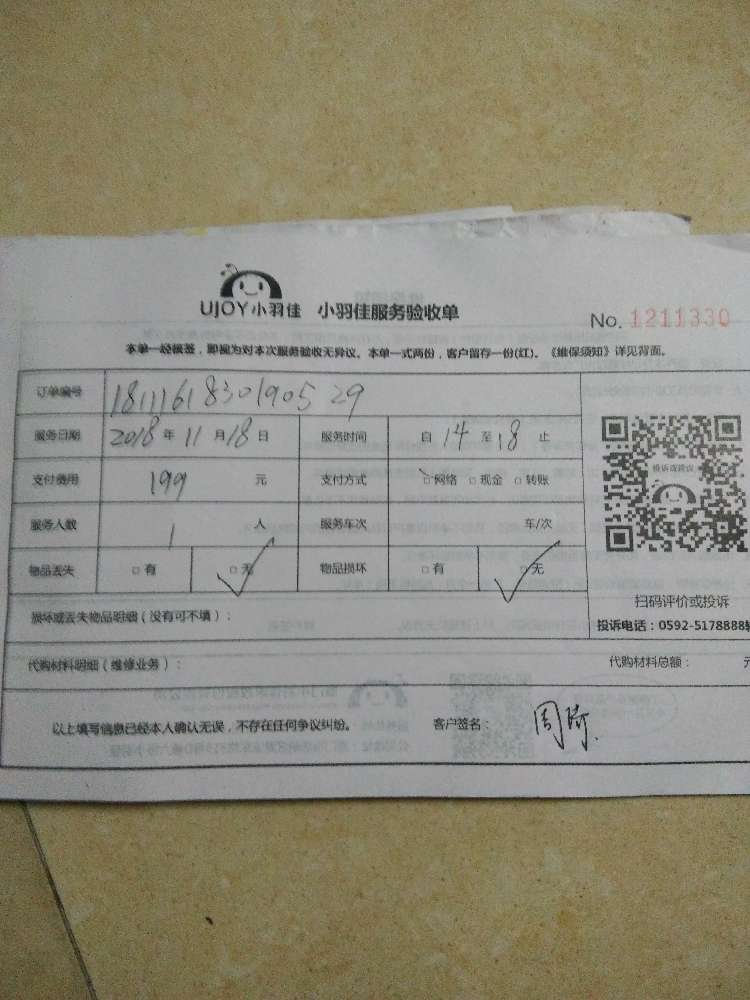 UJOY小羽佳 小羽佳服务验收单
No. 1211330
本单一经被签，即视为对本次服务验收无异议。本单一式两份，客户留存一份(红)。《维保须知》详见背面。
订单编号 18111618301905 29
服务日期 2018 年 11 月 18 日 服务时间 自 14 至 18 止
支付费用 199 元 支付方式 □网络 □现金 □转账
服务人数 1 人 服务车次 车/次
物品丢失 □有 □无 物品损坏 □有 □无
投诉或建议
扫码评价或投诉
投诉电话：0592-5178888转
损坏或丢失物品明细（没有可不填）：
代购材料明细（维修业务）： 代购材料总额： 元
以上填写信息已经本人确认无误，不存在任何争议纠纷。 客户签名： 周